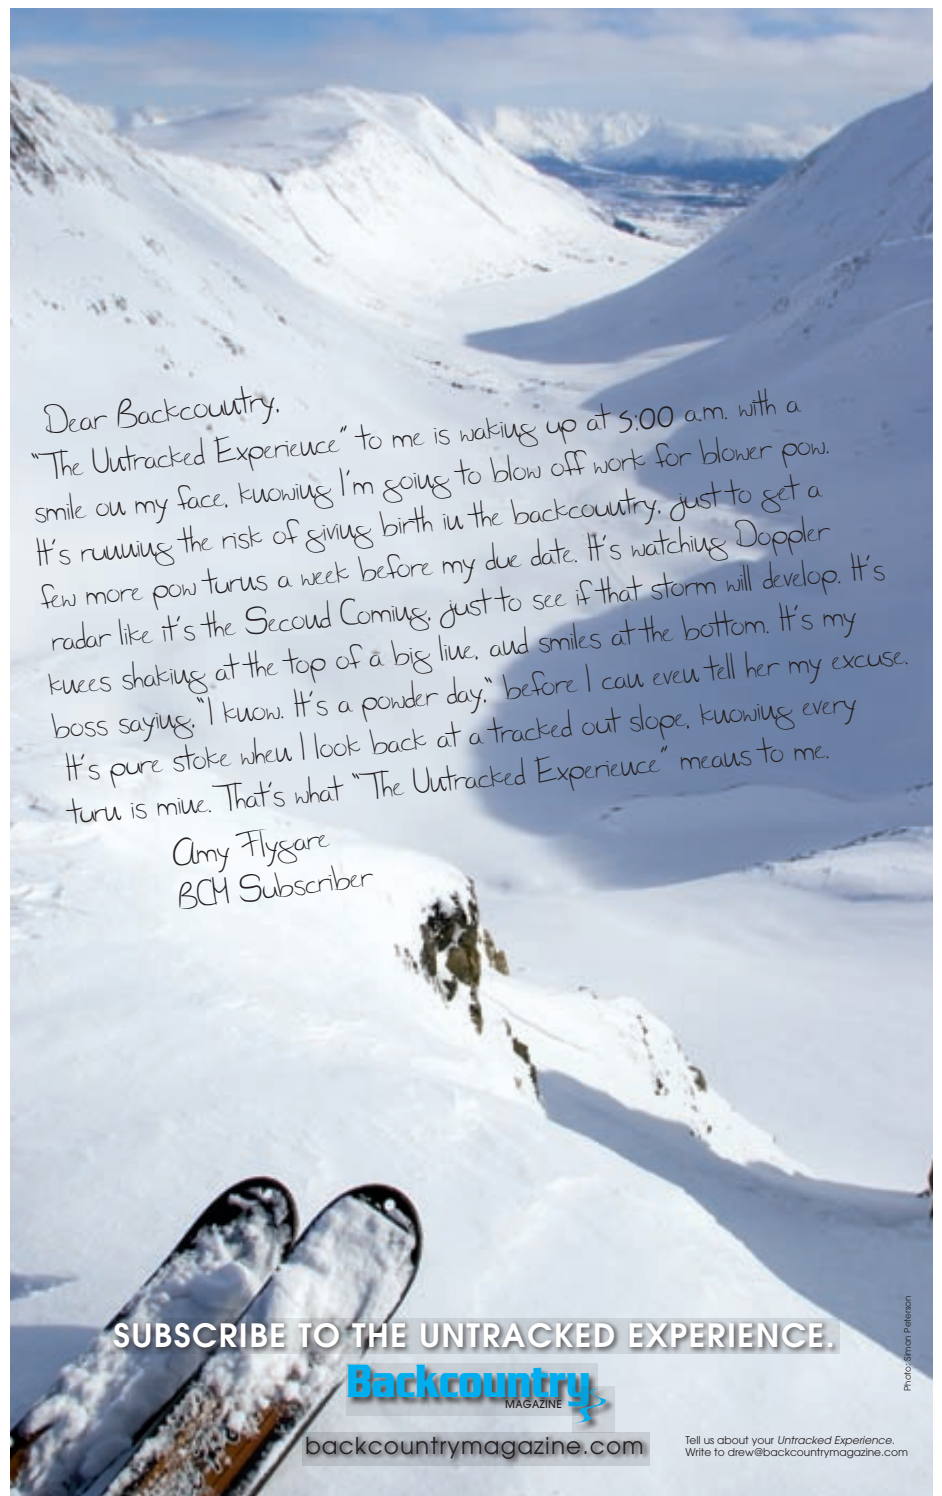 Dear Backcountry,
"The Untracked Experience" to me is waking up at 5:00 a.m. with a
smile on my face, knowing I'm going to blow off work for blower pow.
It's running the risk of giving birth in the backcountry, just to get a
few more pow turns a week before my due date. It's watching Doppler
radar like it's the Second Coming, just to see if that storm will develop. It's
knees shaking at the top of a big line, and smiles at the bottom. It's my
boss saying, "I know. It's a powder day," before I can even tell her my excuse.
It's pure stoke when I look back at a tracked out slope, knowing every
turn is mine. That's what "The Untracked Experience" means to me.
Amy Flygare
BCM Subscriber
SUBSCRIBE TO THE UNTRACKED EXPERIENCE.
Backcountry
MAGAZINE
backcountrymagazine.com
Photo: Simon Peterson
Tell us about your Untracked Experience.
Write to drew@backcountrymagazine.com